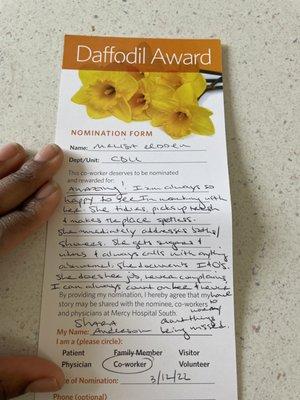 Daffodil Award
NOMINATION FORM
Name: Melisa
Dept/Unit: CDU
This co-worker deserves to be nominated
and rewarded for:
Amazing! I am always so
happy to see I'm working with
her. She tidies, picks up trash
& makes the place spotless.
She immediately addresses baths/
showers. She gets sugars &
vitals & always calls with anything
abnormal. She documents I & O's.
She does her job, never complains.
I can always count on her & never
By providing my nomination, I hereby agree that my
story may be shared with the nominee, co-workers
and physicians at Mercy Hospital South.
worry
anything
being missed.
My Name: Shara Anderson
I am a (please circle):
Patient Family Member Visitor
Physician Co-worker Volunteer
Date of Nomination: 3/12/22
Phone (optional)